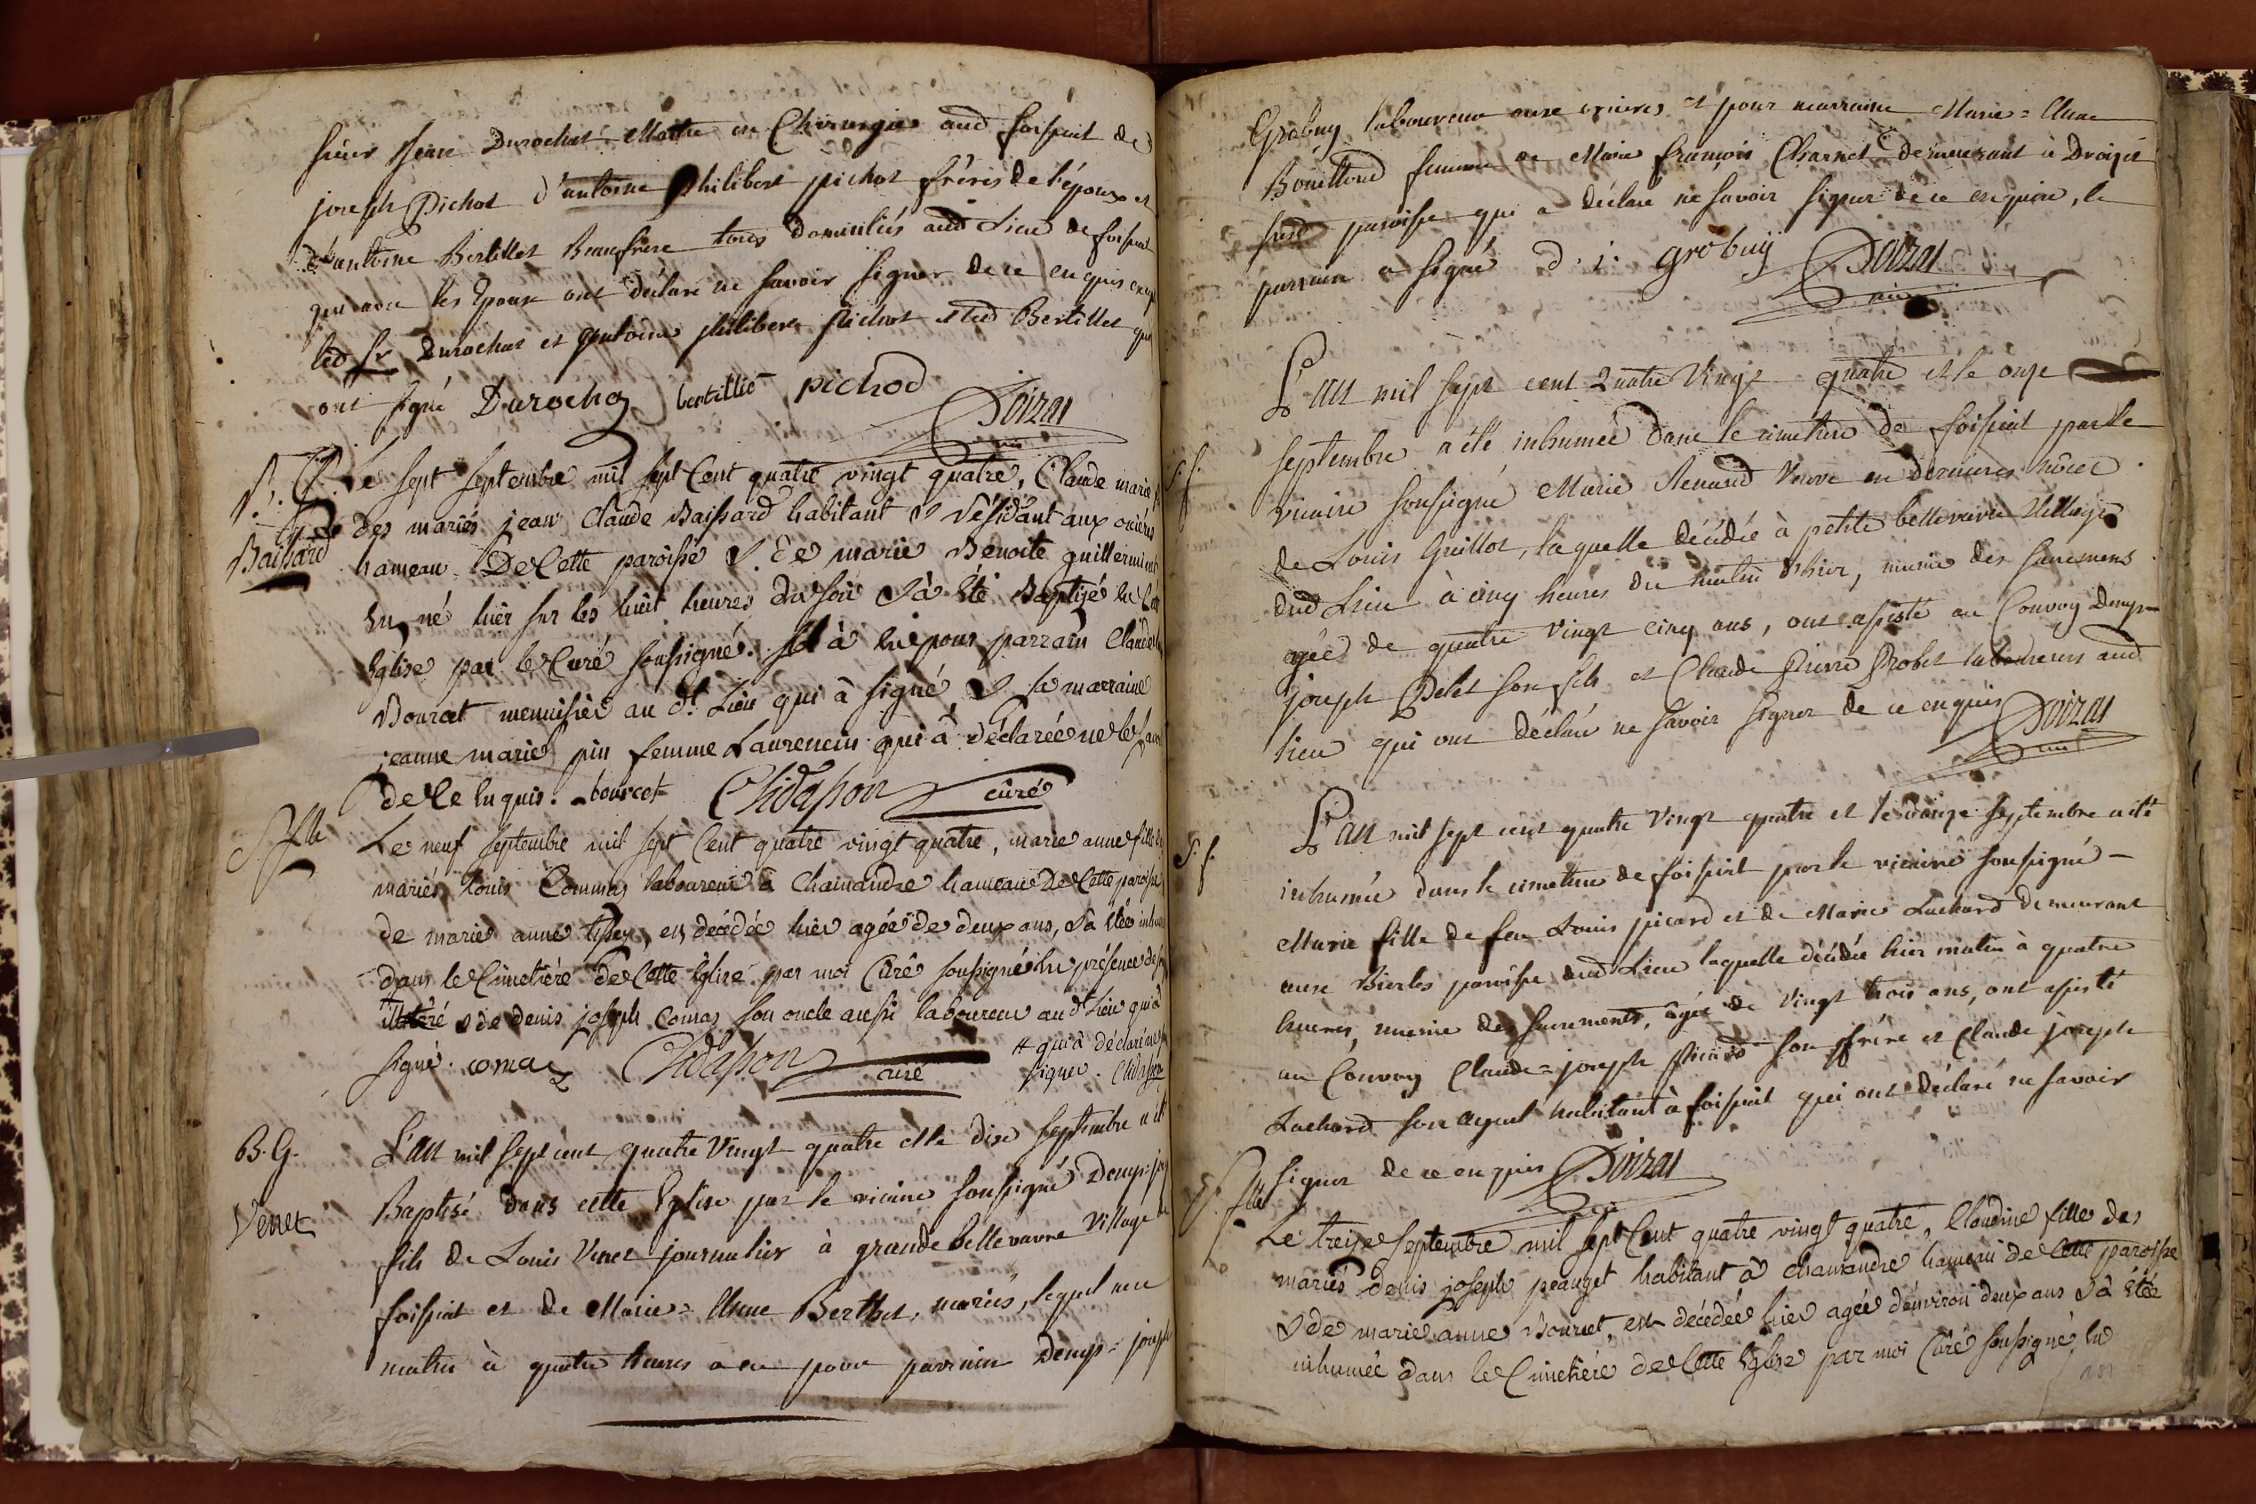 Sieur Jean Durochat Maitre en Chirurgie aud foissiat de
joseph Pichot d'antoine philibert pichot frères de l'époux et
d'antoine Bertillet Beaufrère tous domiciliés aud Lieu de foissiat
les Epoux ont déclaré ne savoir signer de ce enquis
led Sr Durochat et antoine philibert pichot et led Bertillet qui
ont signé Durochaz bertillié pichod Doizat
B. G. Le sept septembre mil sept Cent quatre vingt quatre, Claude marie
Baissard des mariés jean Claude Baissard habitant & Résidant aux
hameau De Cette paroisse & De marie Benoite guillermin
En, né hier sur les huit heures du soir & à Eté Baptizé En
Eglise par le Curé soussigné. Il à Eu pour parrain Claude
Bourcet menuisier au dt. Lieu qui à signé, & sa marraine
jeanne marie pin femme Laurencin qui à déclarée ne le
de Ce Enquis. bourcet Chidasson curé
S. flle Le neuf septembre mil sept Cent quatre vingt quatre, marie anne fille
mariés Louis Commas laboureur à Chamandre hameau De Cette paroisse
de marie anne tissey, est décédée hier agée de deux ans, & à Etée
dans le Cimetiére de Cette Eglise par moi Curé soussigné En présence
& de denis joseph Comas son oncle aussi laboureur au dt Lieu qui à
signé. comaz Chidasson curé # qui à déclaré
signer. Chidasson
B. G. L'an mil sept cent quatre vingt quatre et le dix septembre a été
Venet Baptisé dans cette Eglise par le vicaire soussigné Denys
fils de Louis Venet journalier à grande bellevavre Village
foissiat et de Marie = Anne Berthet, mariés, lequel
matin à quatre heures a eu pour parrain Denys = joseph
Grobuy laboureur et pour marraine Marie = Anne
Bouilloud femme de Marie françois Charnet demeurant à
susd paroisse qui a déclaré ne savoir signer de ce enquise, le
parrain a signé d. j. grobuy Doizat
vic
L'an mil sept cent quatre vingt quatre et le onze
S. f. septembre a été inhumée dans le cimetiere de foissiat par le
vicaire soussigné Marie Renaud Veuve en dernieres nôces
de Louis Guillot, laquelle décédée à petite bellevavre Village
dud Lieu à cinq heures du matin d'hier, munie des sacremens
agée de quatre vingt cinq ans, ont assisté au Convoy Denys
joseph Pelet son fils et Claude Pierre Probet laboureurs aud
lieu qui ont déclaré ne savoir signer de ce enquis Doizat
vic
S. f. L'an mil sept cent quatre vingt quatre et le douze septembre a été
inhumée dans le cimetiere de foissiat par le vicaire soussigné
Marie fille de feu Louis picard et de Marie Luchard demeurant
aux Bierles paroisse dud Lieu laquelle décédée hier matin à quatre
heures, munie des sacrements, agée de vingt trois ans, ont assisté
au Convoy Claude = joseph picard son frére et Claude joseph
Luchard son ayeul habitant à foissiat qui ont déclaré ne savoir
signer de ce enquis Doizat
vic
S. flle Le treize septembre mil sept Cent quatre vingt quatre, Claudine fille des
mariés denis joseph peauget habitant à chamandre hameau de Cette paroisse
& de marie anne Bourcet, est décédée hier agée d'environ deux ans & à Etée
inhumée dans le Cimetiére de Cette Eglise par moi Curé soussigné, En